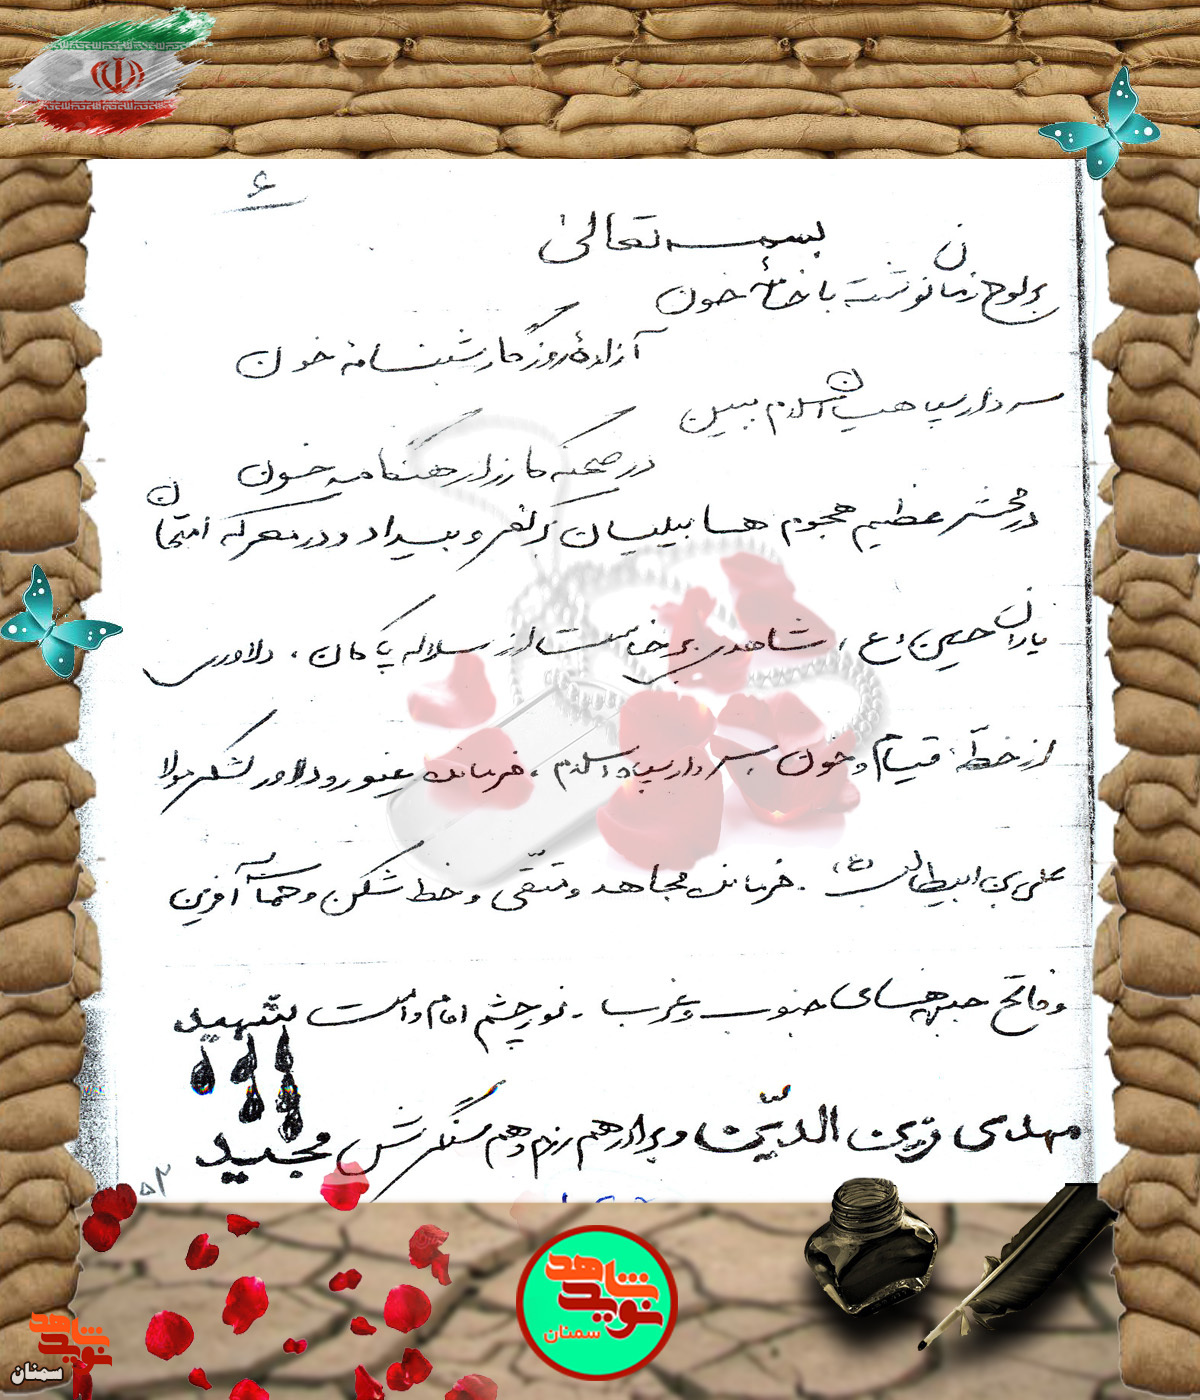 ۶
بسمه تعالی
بر لوح زمان نوشته با خامهٔ خون
آزادهٔ روزگار شبنامه خون
سردار سپاهیان اسلام ببین
در صحنه کارزار هنگامه خون
در محشر عظیم هجوم هابیلیان بر کفر و بیداد و در معرکه امتحان
یاران حسین (ع) ، شاهدی برخاست از سلاله پاکان ، دلاوری
از خطّهٔ قیام و خون ، سردار سپاه اسلام ، فرمانده غیور و دلاور لشکر مولا
علی بن ابیطالب (ع) . فرمانده مجاهد و متّقی و خط شکن و حماسه آفرین
و فاتح جبهه‌های جنوب و غرب . نور چشم امام و امت شهید
مهدی زین الدّین و برادر هم رزم و هم سنگرش مجید
۵۲
شاهد
نوید
سمنان
شاهد
نوید
سمنان